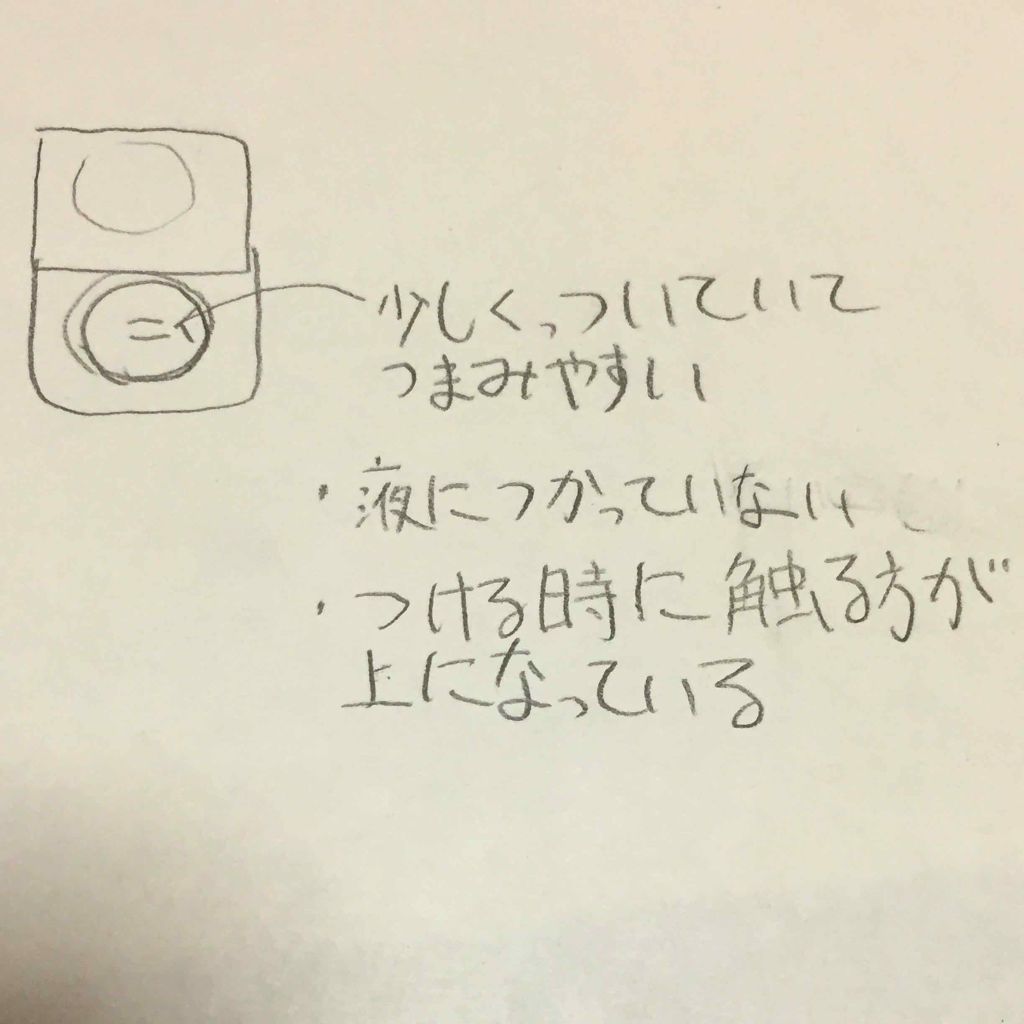 少しくっついていて
つまみやすい
・液につかっていない
・つける時に触る方が
上になっている